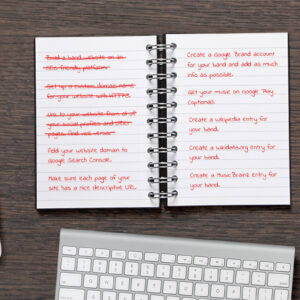 Build a band website on an
SEO friendly platform.
Set up a custom domain name
for your website with HTTPS.
Link to your website from all of
your social profiles and other
pages. Find vice versa.
Add your website domain to
Google Search Console.
Make sure each page of your
site has a nice descriptive URL.
Create a Google Brand account
for your band and add as much
info as possible.
Get your music on Google Play.
(optional).
Create a wikipedia entry for
your band.
Create a wikidata.org entry for
your band.
Create a MusicBrainz entry for
your band.